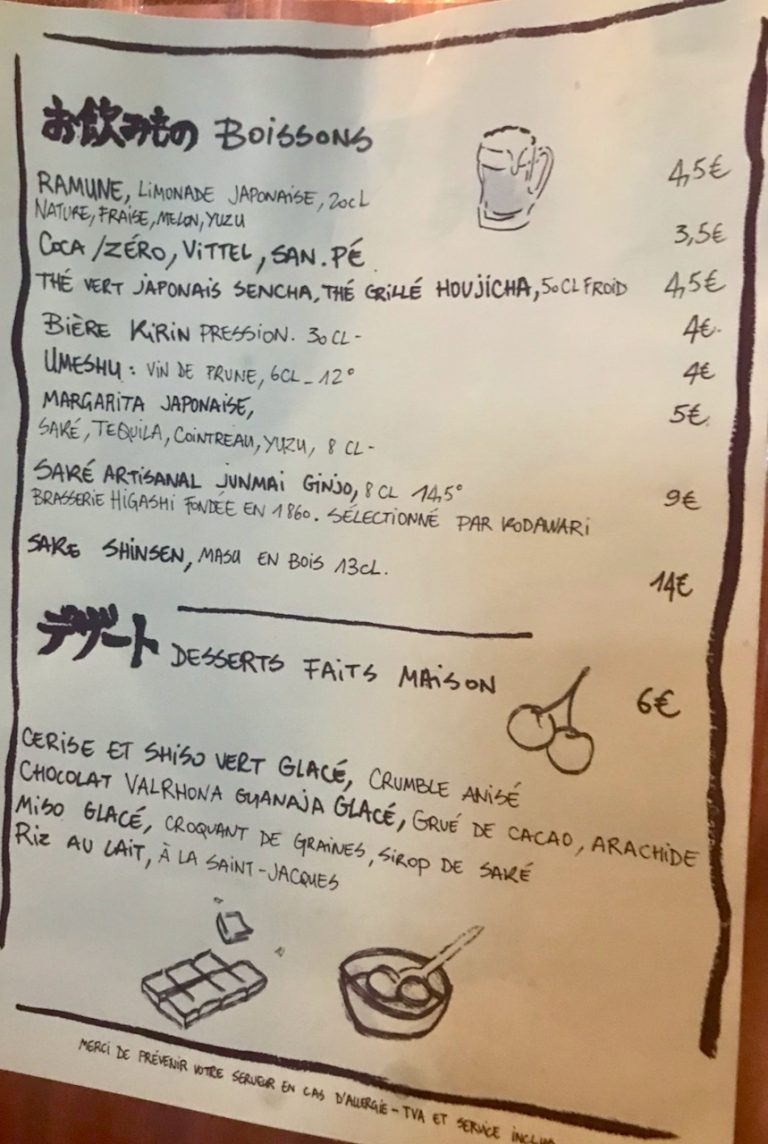 お飲みもの BOISSONS
RAMUNE, LIMONADE JAPONAISE, 20CL 4,5€
NATURE, FRAISE, MELON, YUZU
COCA / ZÉRO, VITTEL, SAN.PÉ 3,5€
THÉ VERT JAPONAIS SENCHA, THÉ GRILLÉ HOUJICHA, 50CL FROID 4,5€
BIÈRE KIRIN PRESSION. 30CL- 4€
UMESHU : VIN DE PRUNE, 6CL_12° 4€
MARGARITA JAPONAISE, 5€
SAKÉ, TEQUILA, COINTREAU, YUZU, 8 CL-
SAKÉ ARTISANAL JUNMAI GINJO, 8CL 14,5° 9€
BRASSERIE HIGASHI FONDÉE EN 1860. SÉLECTIONNÉ PAR KODAWARI
SAKE SHINSEN, MASU EN BOIS 13CL. 14€
デザート DESSERTS FAITS MAISON 6€
CERISE ET SHISO VERT GLACÉ, CRUMBLE ANISÉ
CHOCOLAT VALRHONA GUANAJA GLACÉ, GRUÉ DE CACAO, ARACHIDE
MISO GLACÉ, CROQUANT DE GRAINES, SIROP DE SAKÉ
RIZ AU LAIT, À LA SAINT-JACQUES
MERCI DE PRÉVENIR VOTRE SERVEUR EN CAS D'ALLERGIE - TVA ET SERVICE INCLUS